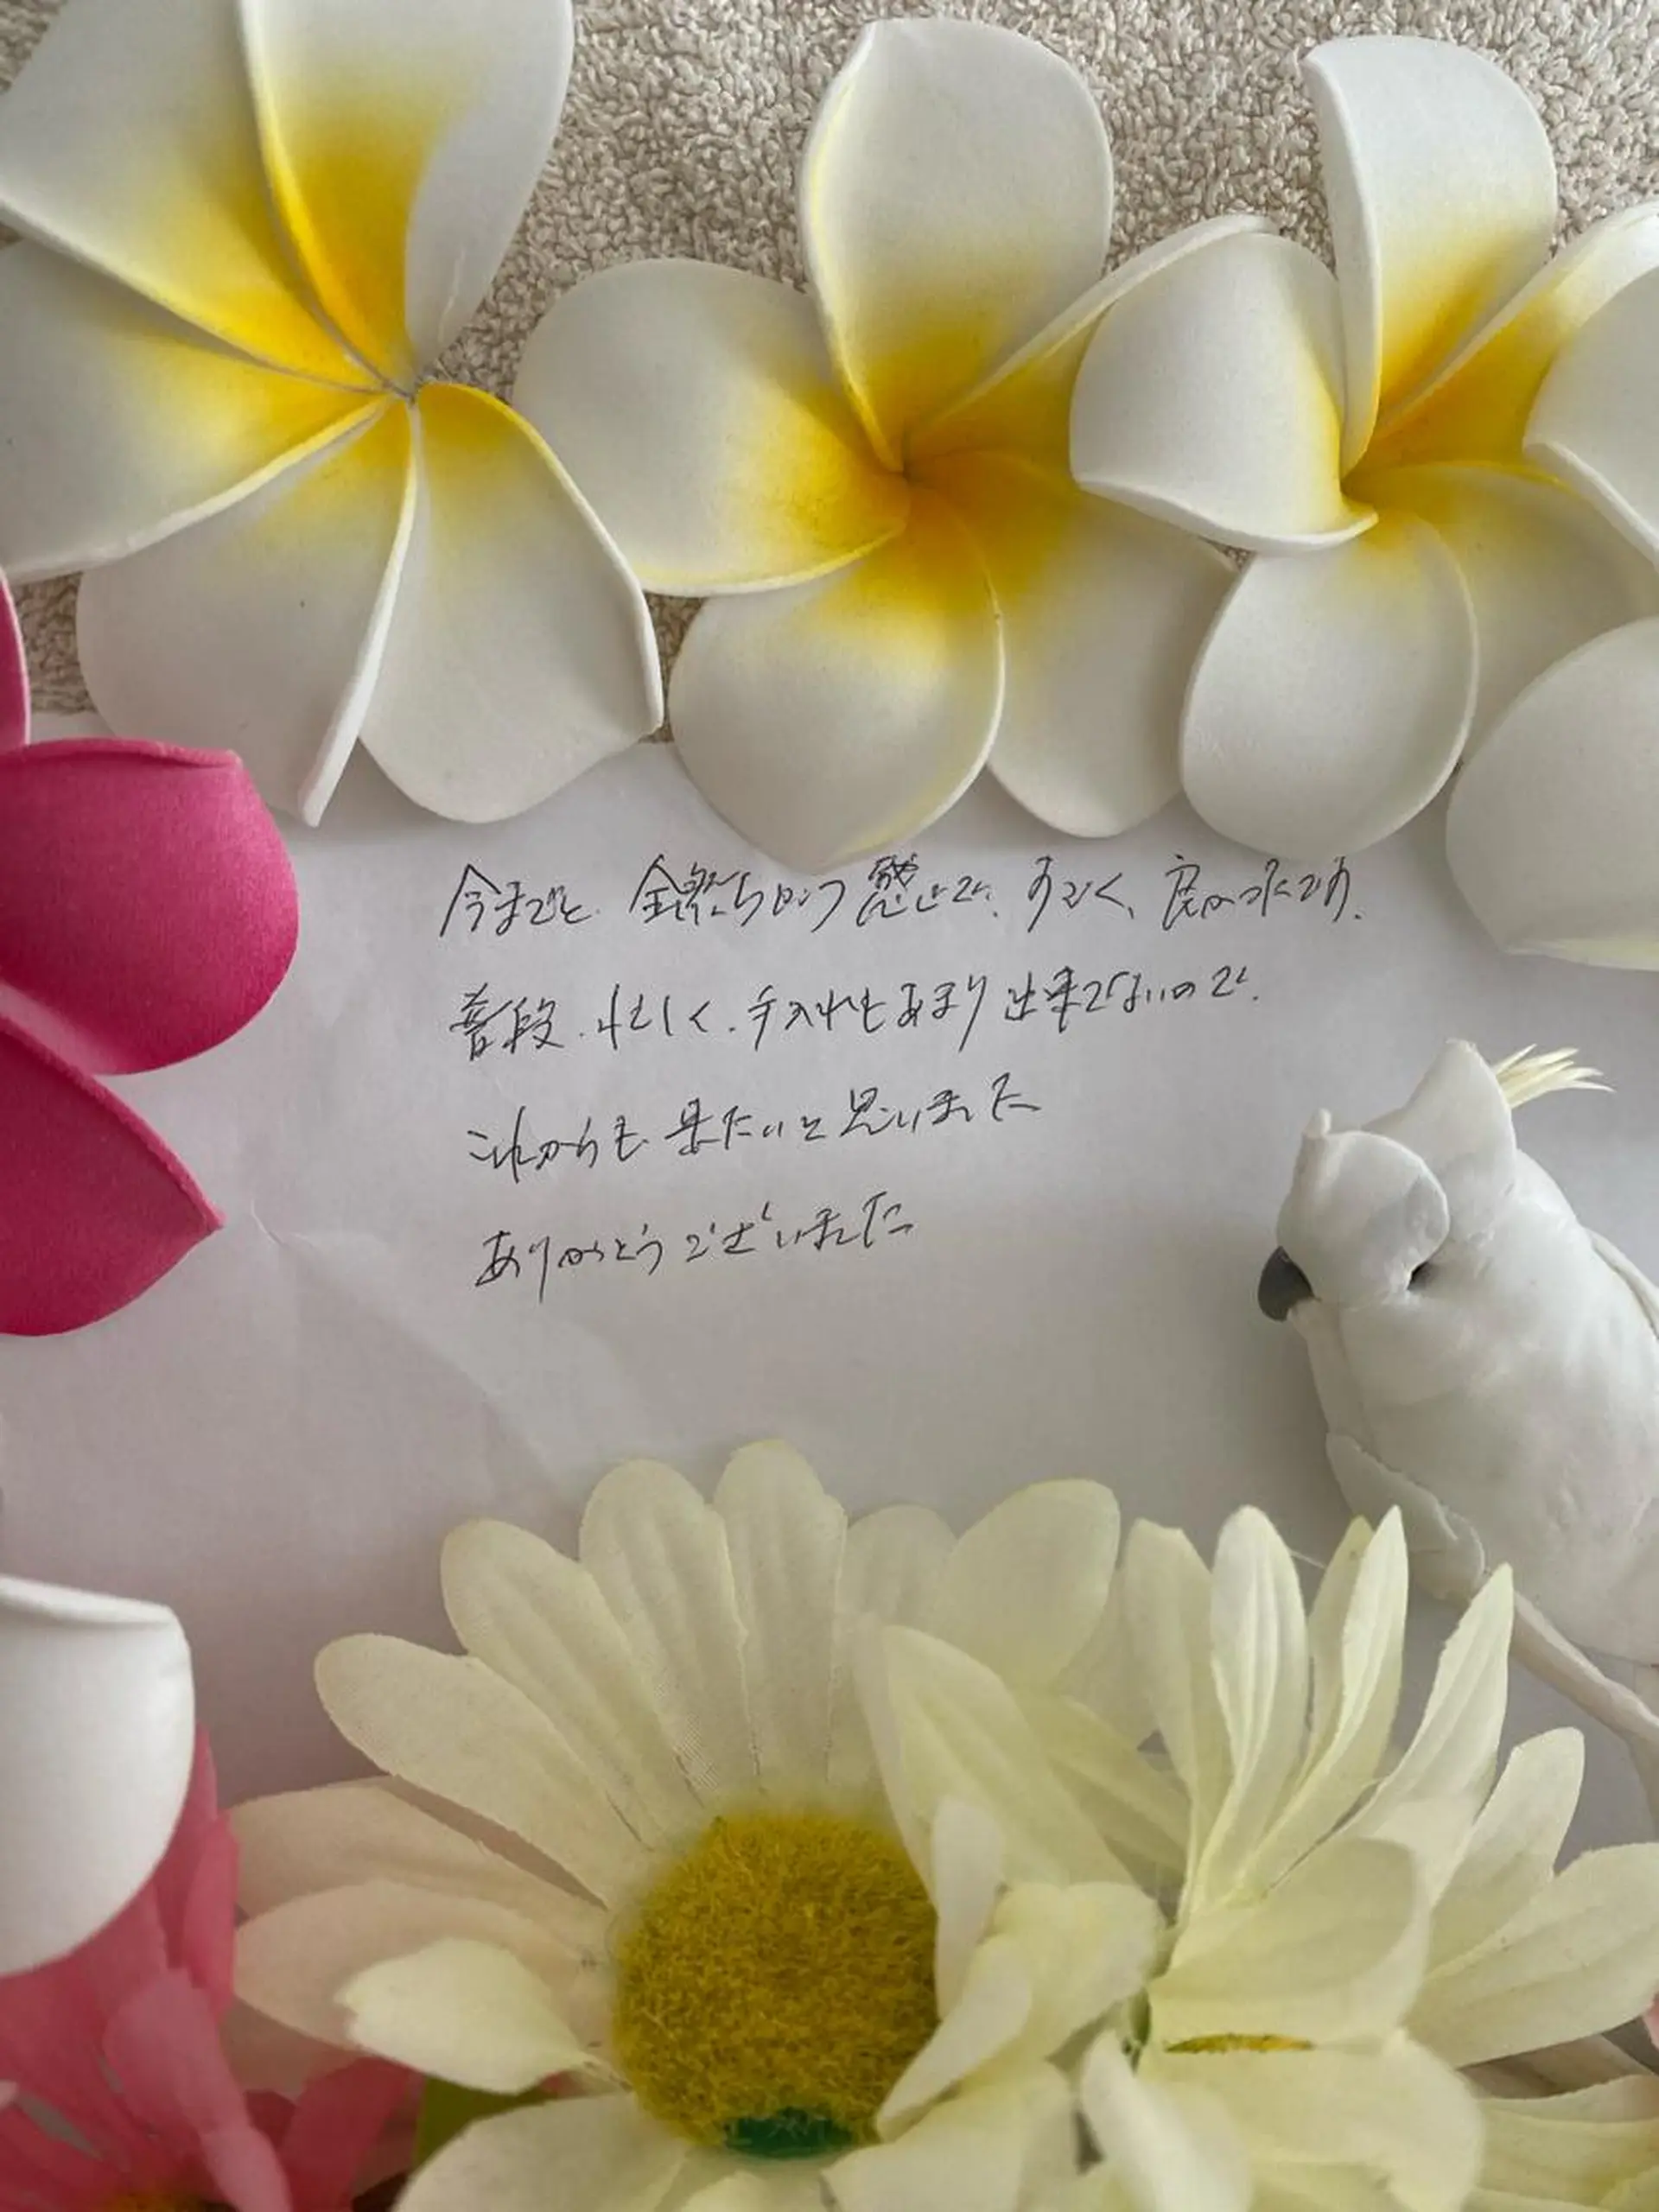 今までと、全然ちがう感じで、すごく、良かったです。
普段、忙しく、手入れもあまり出来てないので、
これからも来たいと思いました
ありがとうございました